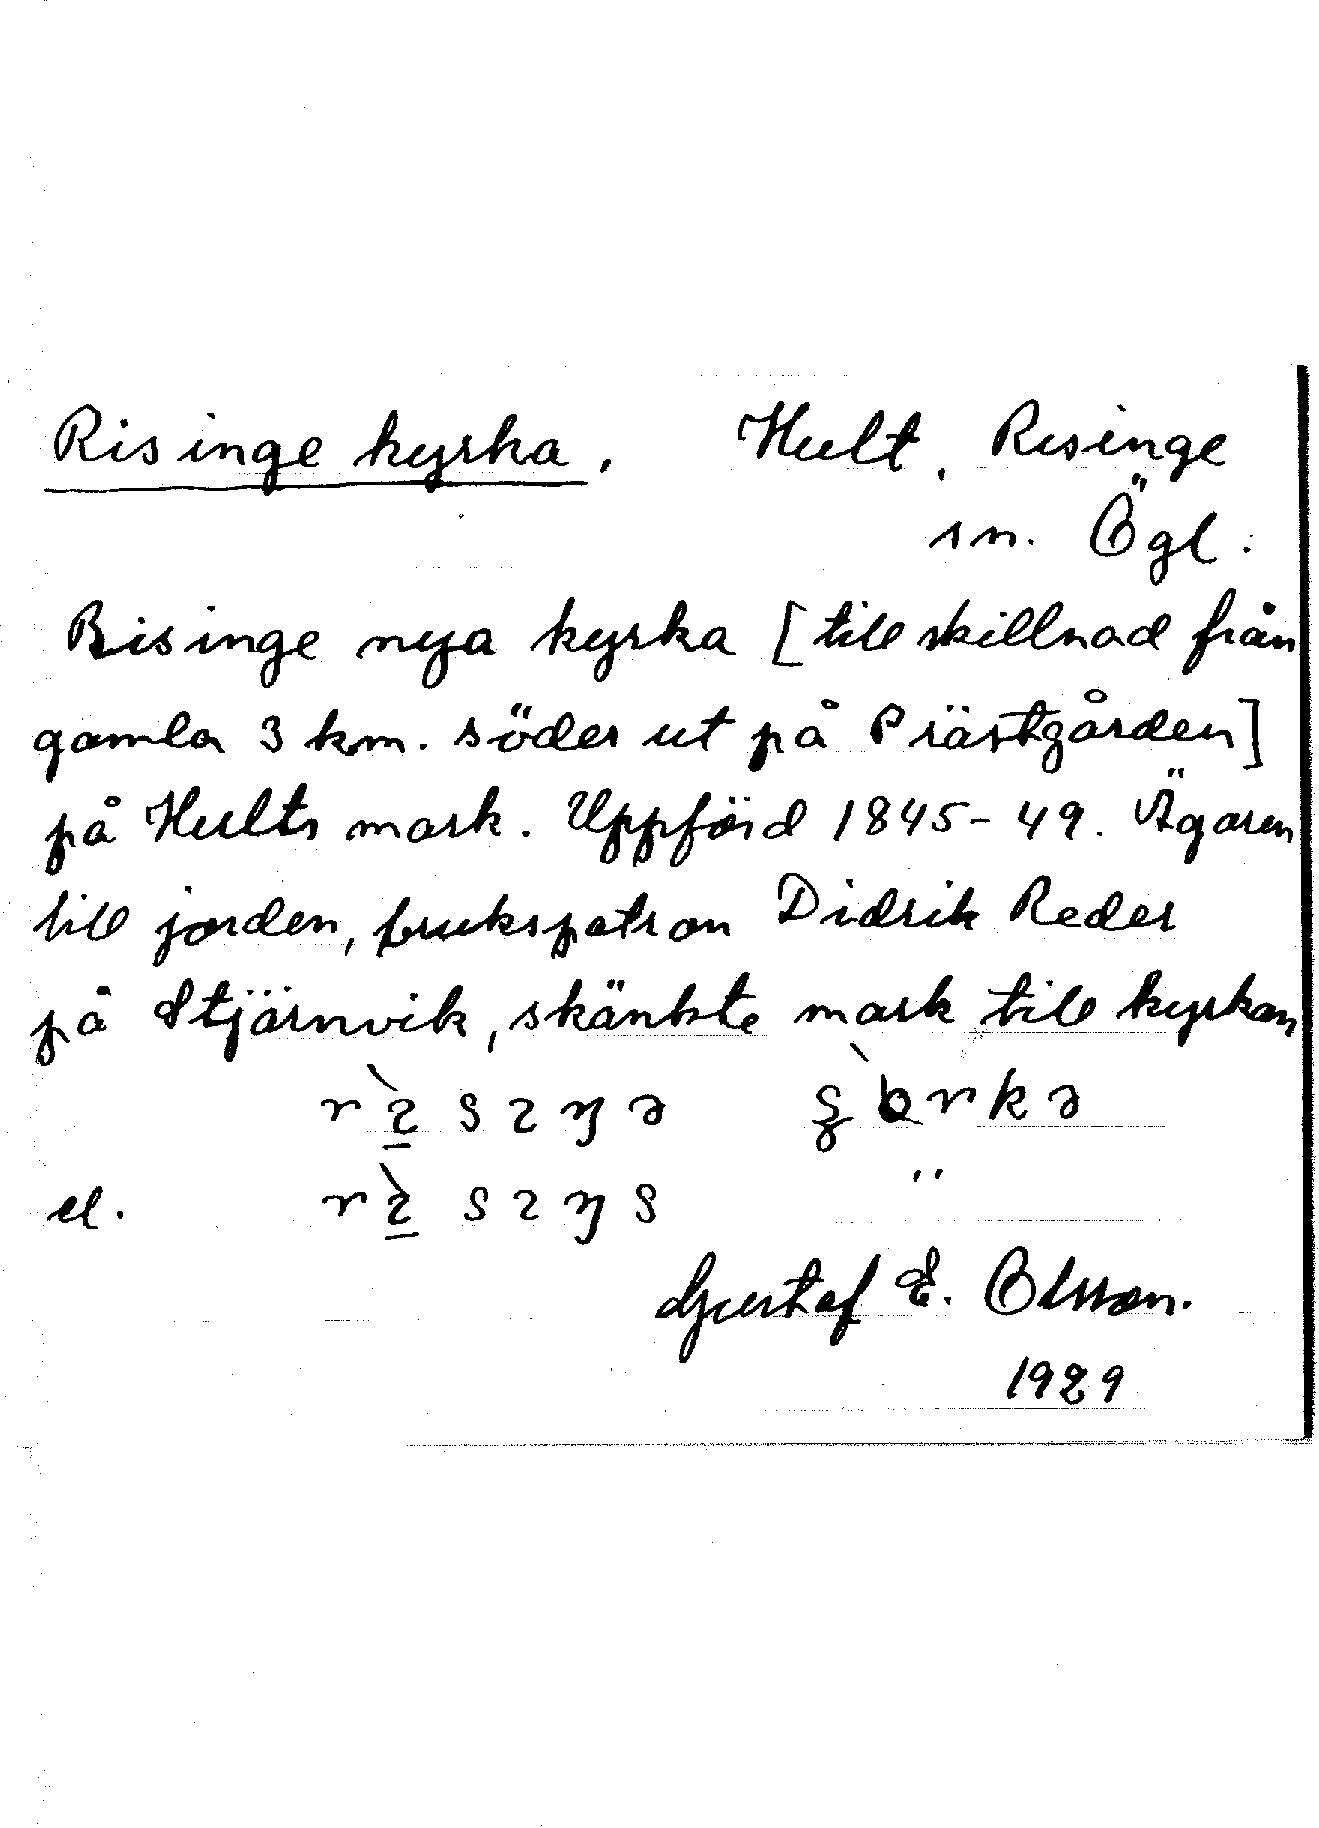 Risinge kyrka. Hult, Risinge
sn. Ögl.
Risinge nya kyrka [till skillnad från
gamla 3 km. söder ut på Prästgården]
på Hults mark. Uppförd 1845-49. Ägaren
till jorden, brukspatron Didrik Reder
på Stjärnvik, skänkte mark till kyrkan
el. "
Gustaf E. Olsson.
1929